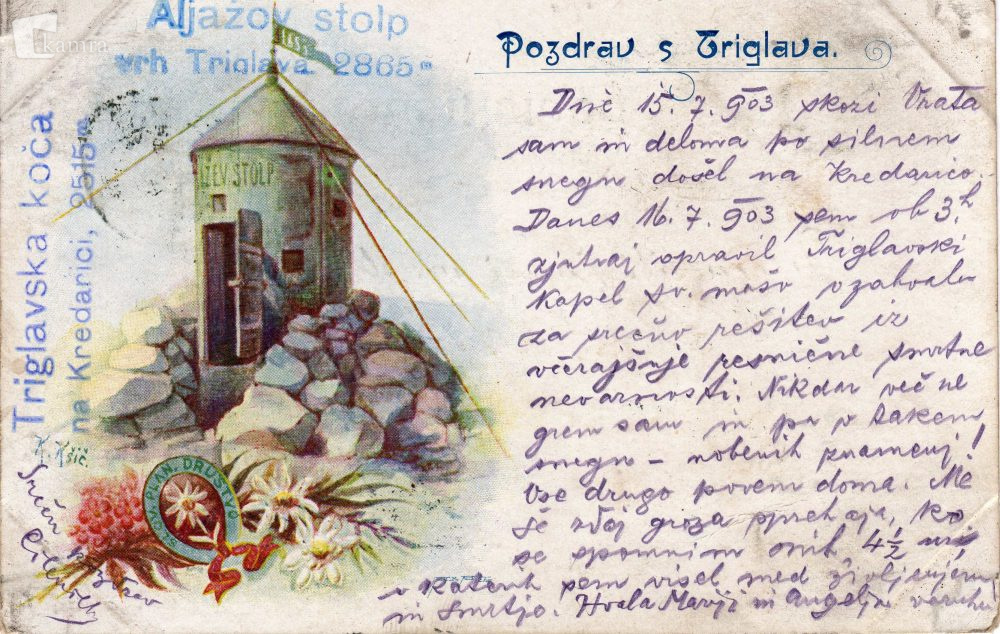 kamra
Aljažov stolp
vrh Triglava 2865 m
Triglavska koča
na Kredarici, 2515 m
Pozdrav s Triglava.
AŽEV STOLP
SLOV. PLAN. DRUŠTVO
15. 7. 903 skozi Vrata
sam in deloma po silnem
snegu došel na Kredarico.
Danes 16. 7. 903 sem ob 3. h
zjutraj opravil v Triglavski
kapel sv. mašo v zahvalo
za srečno rešitev iz
včerajšnje resnične smrtne
nevarnosti. Nikdar več ne
grem sam in pa v takem
snegu – nobenih znamenj!
Vse drugo povem doma. Me
še zdaj groza sprehaja, ko
se spomnim onih 4½ ur,
v katerih sem visel med življenjem
in smrtjo. Hvala Mariji in Angelju varuhu
Srečen pozdrav